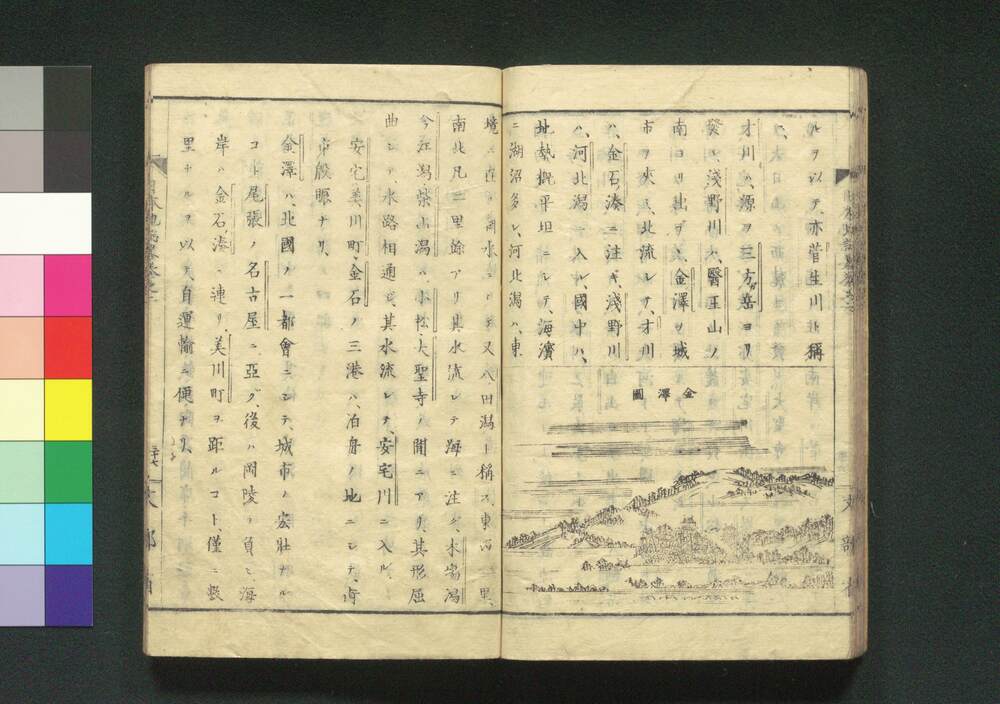 ルヲ以テ、亦菅生川ト稱
才川ハ、源ヲ三方岳ヨリ
發シ、淺野川ハ、醫王山ノ
南ヨリ出デ、金澤ノ城
市ヲ夾ミ、北流シテ、才川
ハ、金石湊ニ注ギ、淺野川
ハ、河北潟ニ入ル、國中ハ、
地勢概平坦ニシテ、海濱
ニ湖沼多シ、河北潟ハ、東
金澤圖
境ニ在
又八田潟ト稱ス、東西二里、
南北凡二里餘アリ其水流レテ海ニ注グ、木場潟
今江潟柴山潟ハ、小松、大聖寺ノ間ニアリ、其形屈
曲シテ、水路相通ジ、其水流レテ、安宅川ニ入ル、
安宅美川町、金石ノ三港ハ、泊舟ノ地ニシテ、
市殷賑ナリ、
金澤ハ、北國ノ一都會ニシテ、城市ノ宏壯ナル
コト尾張ノ名古屋ニ亞グ、後ハ岡陵ヲ負ヒ海
岸ハ金石湊ニ連リ、美川町ヲ距ルコト、僅ニ數
里ナルヲ以テ、自運輸ニ便ナリ、